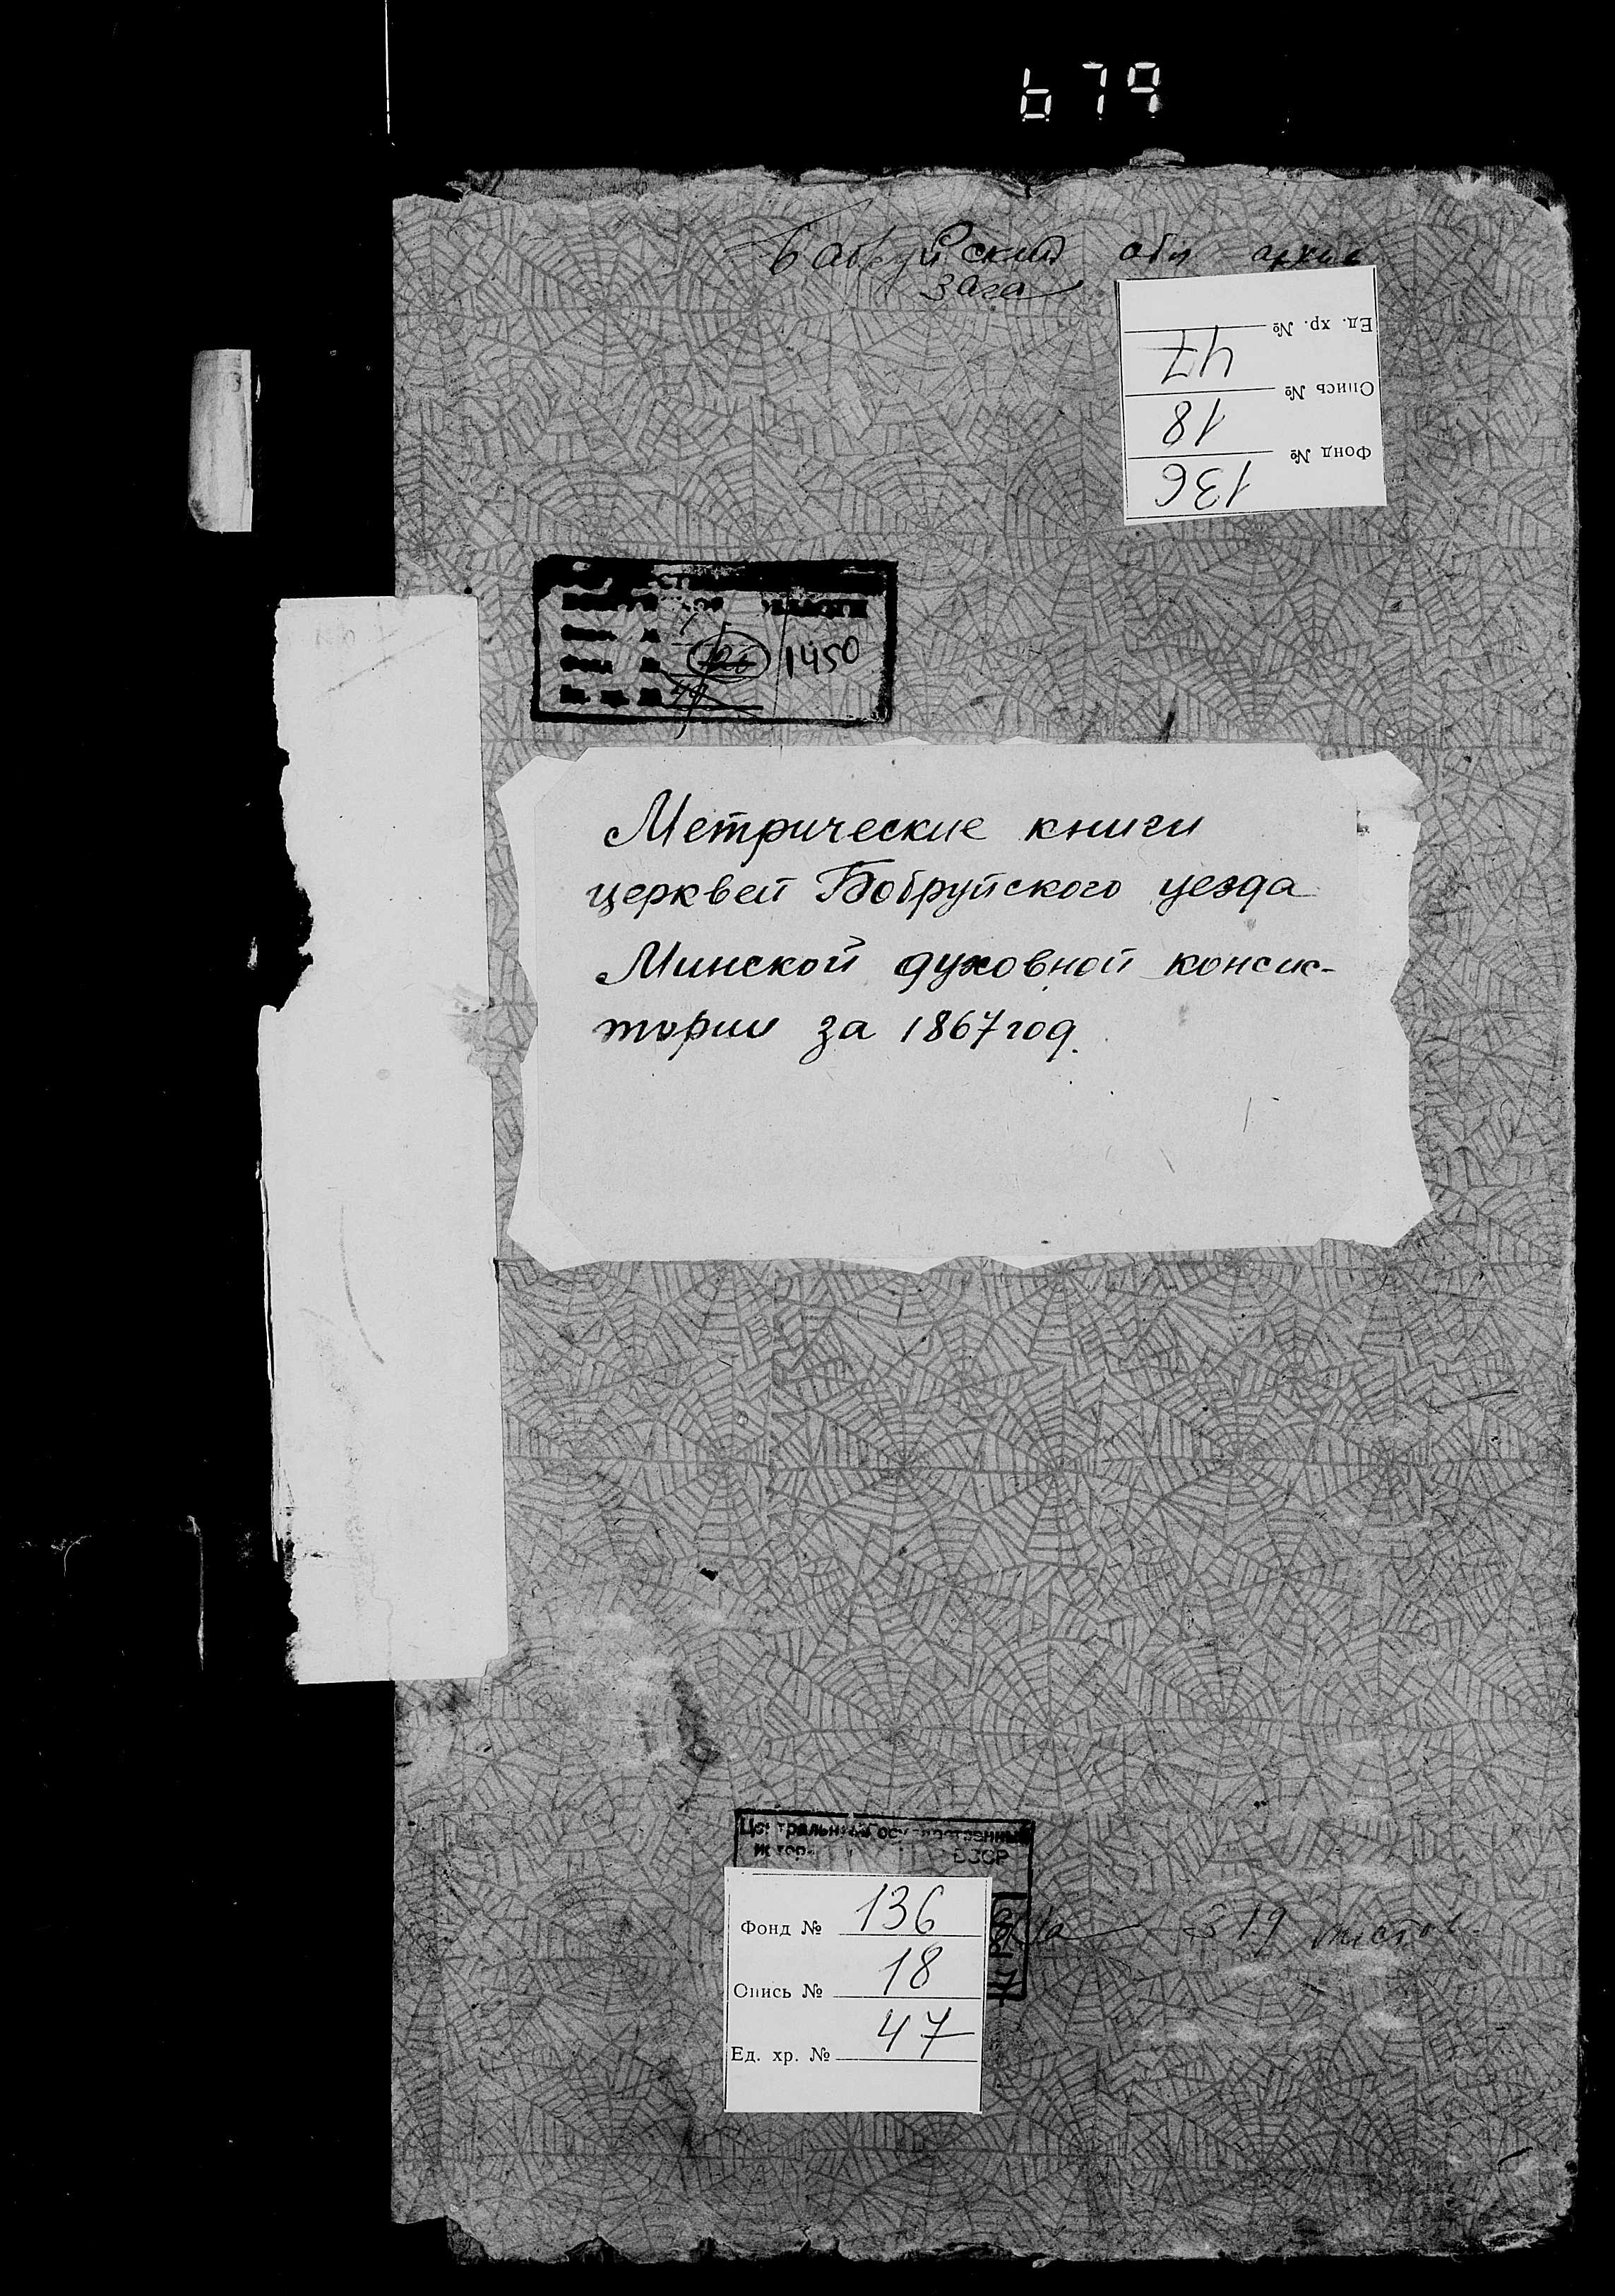 679
Бобруйский обл архив
Загса
Ед. хр. № 47
Опись № 18
Фонд № 136
ОБЛАСТИ
Фонд № 1450
Метрические книги
церквей Бобруйского уезда
Минской духовной консис-
тории за 1867 год.
Центральный Государственный
истор. БССР
319 листов
Фонд № 136
Опись № 18
Ед. хр. № 47